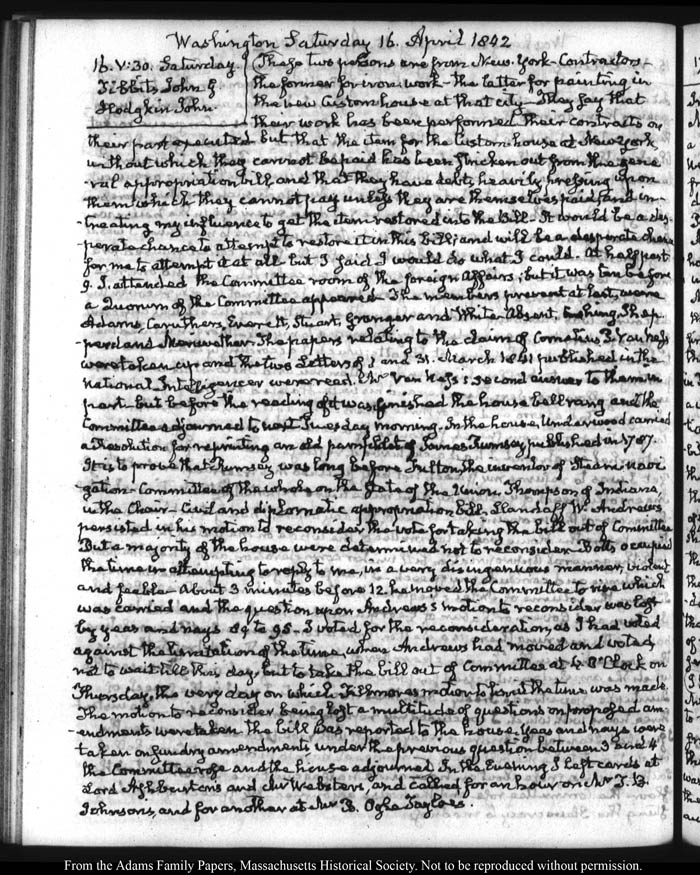 Washington Saturday 16. April 1842
16. V:30. Saturday
Tibbits John G
Hodgkin John.
These two persons are from New-York-Contractors-
the former for iron work- the latter for painting in
the new Customhouse at that city- They say that
their work has been performed their contracts on
their part executed but that the item for the Custom house at New York,
without which they cannot be paid has been stricken out from the gene
-ral appropriation bill, and that they have debts heavily pressing upon
them which they cannot pay unless they are themselves paid, and in-
-treating my influence to get the item restored into the Bill. It would be a des-
perate chance to attempt to restore it in this bill; and will be a desperate chance
for me to attempt it at all but I said I would do what I could. At half past
9. I attended the Committee room of the foreign Affairs; but it was ten before
a Quorum of the Committee appeared. The members present at last, were
Adams, Caruthers, Everett, Stuart, Granger and White. Absent, Cushing, Shep
-perd and Meriwether. The papers relating to the claim of Cornelius P. Van Ness
were taken up and the two Letters of and 31. March 1841 published in the
National Intelligencer were read. Mr Van Ness's second answer to them in
part. but before the reading of it was finished the house bell rang and the
Committee adjourned to next Tuesday morning. In the house, Underwood carried
a Resolution for reprinting an old pamphlet of James Rumsey, published in 1787.
It is to prove that Rumsey was long before Fulton, the inventor of Steam navi
-gation- Committee of the whole on the State of the Union. Thompson of Indiana,
in the Chair- Civil and diplomatic appropriation bill. Landaff W. Andrews
persisted in his motion to reconsider the vote for taking the bill out of Committee
But a majority of the house were determined not to reconsider. Botts occupied
the time in attempting to reply to me, in a very disingenuous manner, violent
and feeble- About 3 minutes before 12. he moved the Committee to rise which
was carried and the question upon Andrews's motion to reconsider was lost
by yeas and nays 89 to 95- I voted for the reconsideration, as I had voted
against the limitation of the time, when Andrews had moved and voted,
not to wait till this day, but to take the bill out of Committee at O'Clock on
Thursday, the very day on which Fillmore's motion to limit the time was made.
The motion to reconsider being lost a multitude of questions on proposed am
-endments were taken. the bill was reported to the house. Yeas and nays were
taken on sundry amendments under the previous question between 3 and 4
the Committee rose and the house adjourned. In the Evening I left cards at
Lord Ashburton's and Mr Webster's, and called for an hour on Mr
Johnson, and for another at Mr B. Ogle Tayloe's.
From the Adams Family Papers, Massachusetts Historical Society. Not to be reproduced without permission.